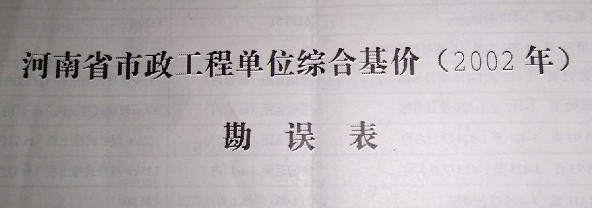 河南省市政工程单位综合基价（2002年）
勘误表